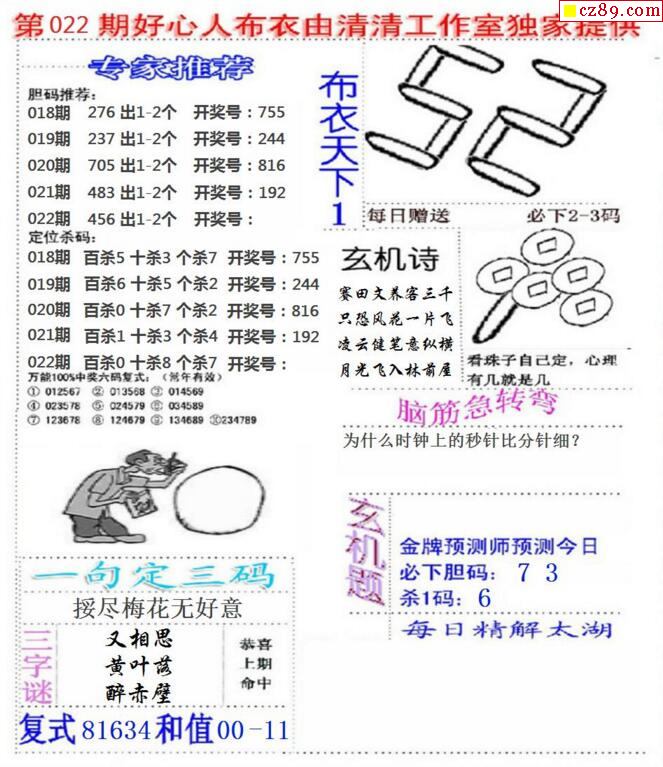 cz89.com
第022期好心人布衣由清清工作室独家提供
专家推荐
胆码推荐：
018期 276出1-2个 开奖号：755
019期 237出1-2个 开奖号：244
020期 705出1-2个 开奖号：816
021期 483出1-2个 开奖号：192
022期 456出1-2个 开奖号：
定位杀码：
018期 百杀5 十杀3 个杀7 开奖号：755
019期 百杀6 十杀5 个杀2 开奖号：244
020期 百杀0 十杀7 个杀2 开奖号：816
021期 百杀1 十杀3 个杀4 开奖号：192
022期 百杀0 十杀8 个杀7 开奖号：
万能100%中奖六码复式：（常年有效）
① 012567 ② 013568 ③ 014569
④ 023578 ⑤ 024579 ⑥ 034589
⑦ 123678 ⑧ 124679 ⑨ 134689 ⑩234789
布衣天下1
52
每日赠送 必下2-3码
玄机诗
赛田文养客三千
只恐风花一片飞
凌云健笔意纵横
月光飞入林前屋
看珠子自己定，心理
有几就是几
脑筋急转弯
为什么时钟上的秒针比分针细？
玄机题
金牌预测师预测今日
必下胆码： 7 3
杀1码：6
每日精解太湖
一句定三码
挼尽梅花无好意
三字谜
又相思
黄叶落
醉赤壁
恭喜
上期
命中
复式81634和值00-11